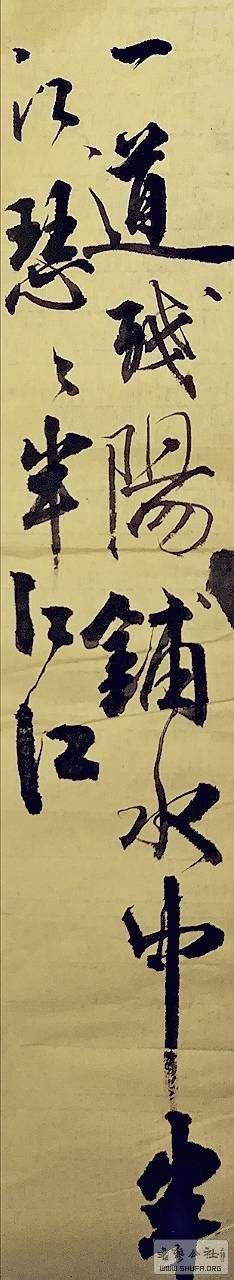 一道残陽鋪水中半
江瑟々半江紅
书艺公社
WWW.SHUFA.ORG